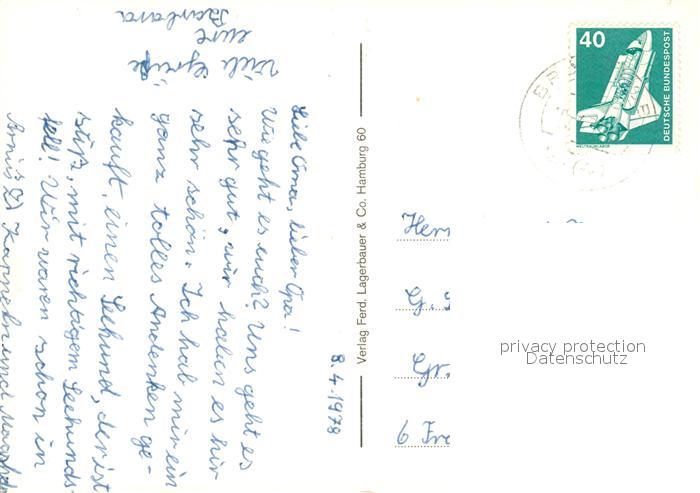 8.4.1978
Liebe Oma, lieber Opa!
Wie geht es euch? Uns geht es
sehr gut, wir haben es hir
sehr schön. Ich hab mir ein
ganz tolles Andenken ge-
kauft, einen Seehund, der ist
süß, mit richtigem Seehunds-
fell! Wir waren schon in
Arnis, Kappeln und
Viele Grüße
eure
Barbara
Verlag Ferd. Lagerbauer & Co. Hamburg 60
40
DEUTSCHE BUNDESPOST
WELTRAUMLABOR
Herr
G. S
Gr.
6 Fra
privacy protection
Datenschutz